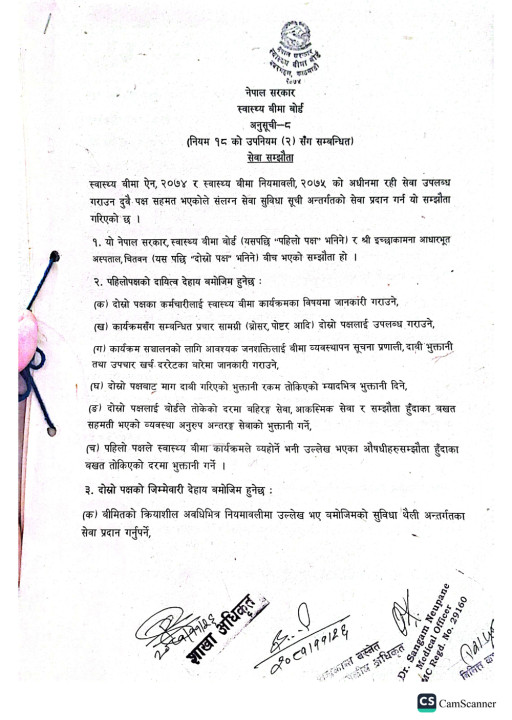 नेपाल सरकार
स्वास्थ्य बीमा बोर्ड
२०७४
नेपाल सरकार
स्वास्थ्य बीमा बोर्ड
अनुसूची–८
(नियम १८ को उपनियम (२) सँग सम्बन्धित)
सेवा सम्झौता
स्वास्थ्य बीमा ऐन, २०७४ र स्वास्थ्य बीमा नियमावली, २०७५ को अधीनमा रही सेवा उपलब्ध
गराउन दुवै पक्ष सहमत भएकोले संलग्न सेवा सुविधा सूची अन्तर्गतको सेवा प्रदान गर्न यो सम्झौता
गरिएको छ ।
१. यो नेपाल सरकार, स्वास्थ्य बीमा बोर्ड (यसपछि "पहिलो पक्ष" भनिने) र श्री इच्छाकामना आधारभूत
अस्पताल, चितवन (यस पछि "दोस्रो पक्ष" भनिने) बीच भएको सम्झौता हो ।
२. पहिलोपक्षको दायित्व देहाय बमोजिम हुनेछ :
(क) दोस्रो पक्षका कर्मचारीलाई स्वास्थ्य बीमा कार्यक्रमका विषयमा जानकारी गराउने,
(ख) कार्यक्रमसँग सम्बन्धित प्रचार सामग्री (ब्रोसर, पोष्टर आदि) दोस्रो पक्षलाई उपलब्ध गराउने,
(ग) कार्यक्रम सञ्चालनको लागि आवश्यक जनशक्तिलाई बीमा व्यवस्थापन सूचना प्रणाली, दावी भुक्तानी
तथा उपचार खर्च दररेटका बारेमा जानकारी गराउने,
(घ) दोस्रो पक्षबाट माग दावी गरिएको भुक्तानी रकम तोकिएको म्यादभित्र भुक्तानी दिने,
(ङ) दोस्रो पक्षलाई बोर्डले तोकेको दरमा बहिरङ्ग सेवा, आकस्मिक सेवा र सम्झौता हुँदाका बखत
सहमती भएको व्यवस्था अनुरुप अन्तरङ्ग सेवाको भुक्तानी गर्ने,
(च) पहिलो पक्षले स्वास्थ्य बीमा कार्यक्रमले व्यहोर्ने भनी उल्लेख भएका औषधीहरुसम्झौता हुँदाका
बखत तोकिएको दरमा भुक्तानी गर्ने ।
३. दोस्रो पक्षको जिम्मेवारी देहाय बमोजिम हुनेछ :
(क) बीमितको क्रियाशील अवधिभित्र नियमावलीमा उल्लेख भए बमोजिमको सुविधा थैली अन्तर्गतका
सेवा प्रदान गर्नुपर्ने,
२०८१।११।२६
शाखा अधिकृत
२०८१।११।२६
बस्नेत
अधिकृत
Dr. Sangam Neupane
Medical Officer
MC Regd. No. 29160
CS CamScanner